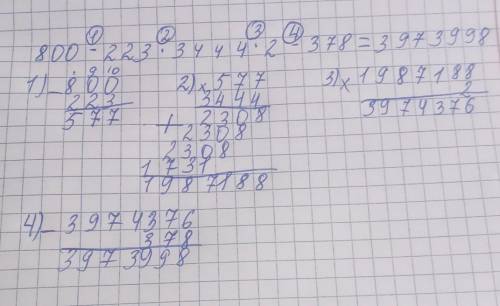 ① ② ③ ④
800 - 223 · 3444 · 2 - 378 = 3973998
1) - 800
223
577
2) x 577
3444
+ 2308
2308
2308
1731
1987188
3) x 1987188
2
3974376
4) - 3974376
378
3973998